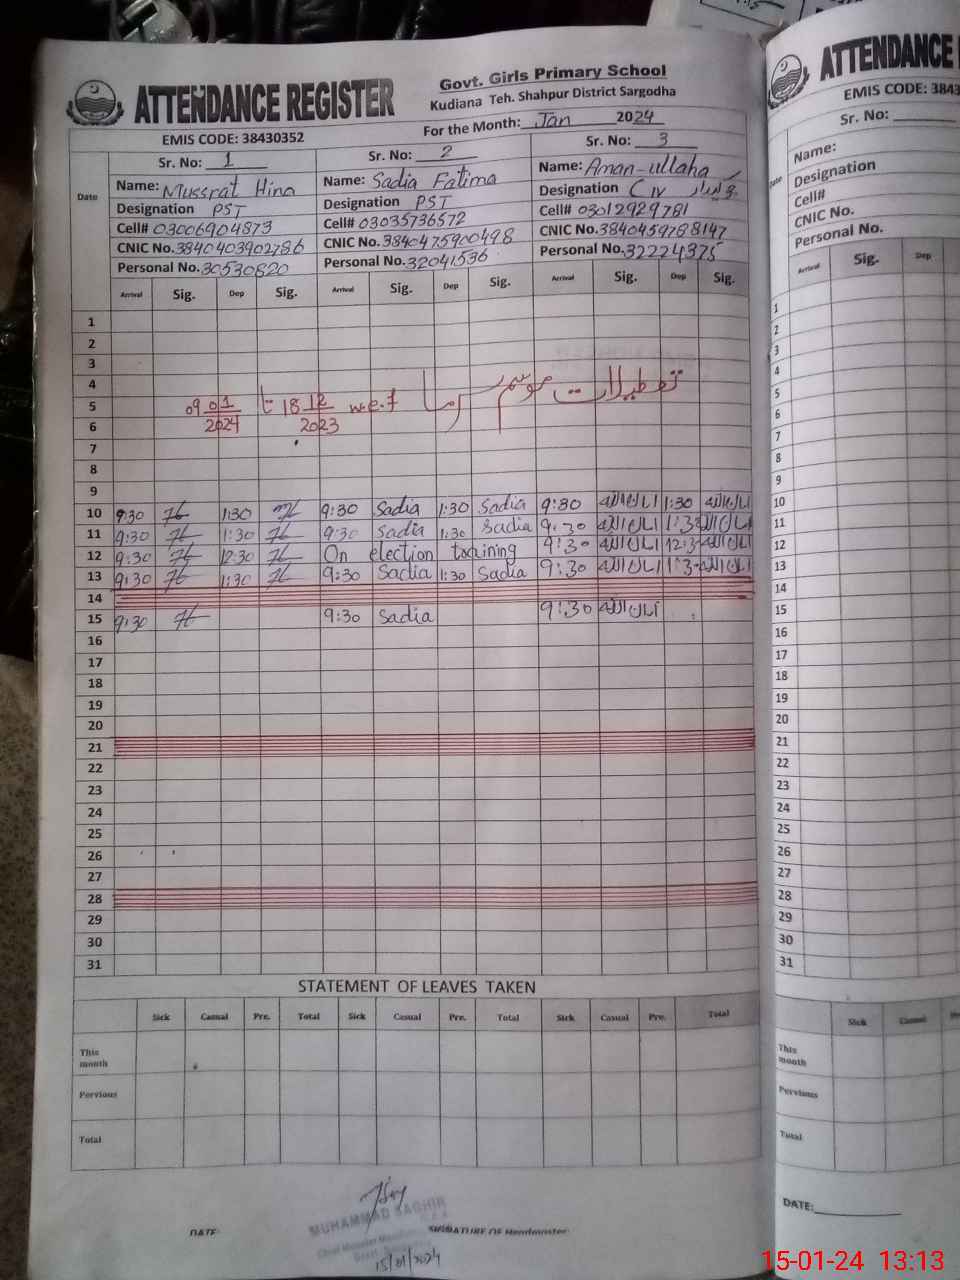 ATTENDANCE REGISTER
Govt. Girls Primary School
Kudiana Teh. Shahpur District Sargodha
EMIS CODE: 38430352
For the Month: Jan 2024
Sr. No: 1 Sr. No: 2 Sr. No: 3
Date
Name: Mussrat Hina Name: Sadia Fatima Name: Aman-ullaha
Designation PST Designation PST Designation C IV
Cell# 03006904873 Cell# 03035736572 Cell# 03012929781
CNIC No. 3840403902786 CNIC No. 3840475900498 CNIC No. 3840459788147
Personal No. 30530820 Personal No. 32041536 Personal No. 32224375
Arrival Sig. Dep Sig. Arrival Sig. Dep Sig. Arrival Sig. Dep Sig.
1
2
3
4
تعطیلات موسم سرما w.e.f 18 12 2023 تا 09 01 2024
5
6
7
8
9
10 9:30 1:30 9:30 Sadia 1:30 Sadia 9:30 امان اللہ 1:30 امان اللہ
11 9:30 1:30 9:30 Sadia 1:30 Sadia 9:30 امان اللہ 1:3 امان اللہ
12 9:30 12:30 On election training 9:30 امان اللہ 12:3 امان اللہ
13 9:30 1:30 9:30 Sadia 1:30 Sadia 9:30 امان اللہ 1:3 امان اللہ
14
15 9:30 9:30 Sadia 9:30 امان اللہ
16
17
18
19
20
21
22
23
24
25
26
27
28
29
30
31
STATEMENT OF LEAVES TAKEN
Sick Casual Pre. Total Sick Casual Pre. Total Sick Casual Pre. Total
This month
Pervious
Total
MUHAMMAD SAGHIR
DATE: SIGNATURE OF Headmaster:
15/01/2024
ATTENDANCE
EMIS CODE: 3843
Sr. No:
Name:
Designation
Cell#
CNIC No.
Personal No.
Arrival Sig. Dep
1
2
3
4
5
6
7
8
9
10
11
12
13
14
15
16
17
18
19
20
21
22
23
24
25
26
27
28
29
30
31
Sick Casual
This month
Pervious
Total
DATE:
15-01-24 13:13